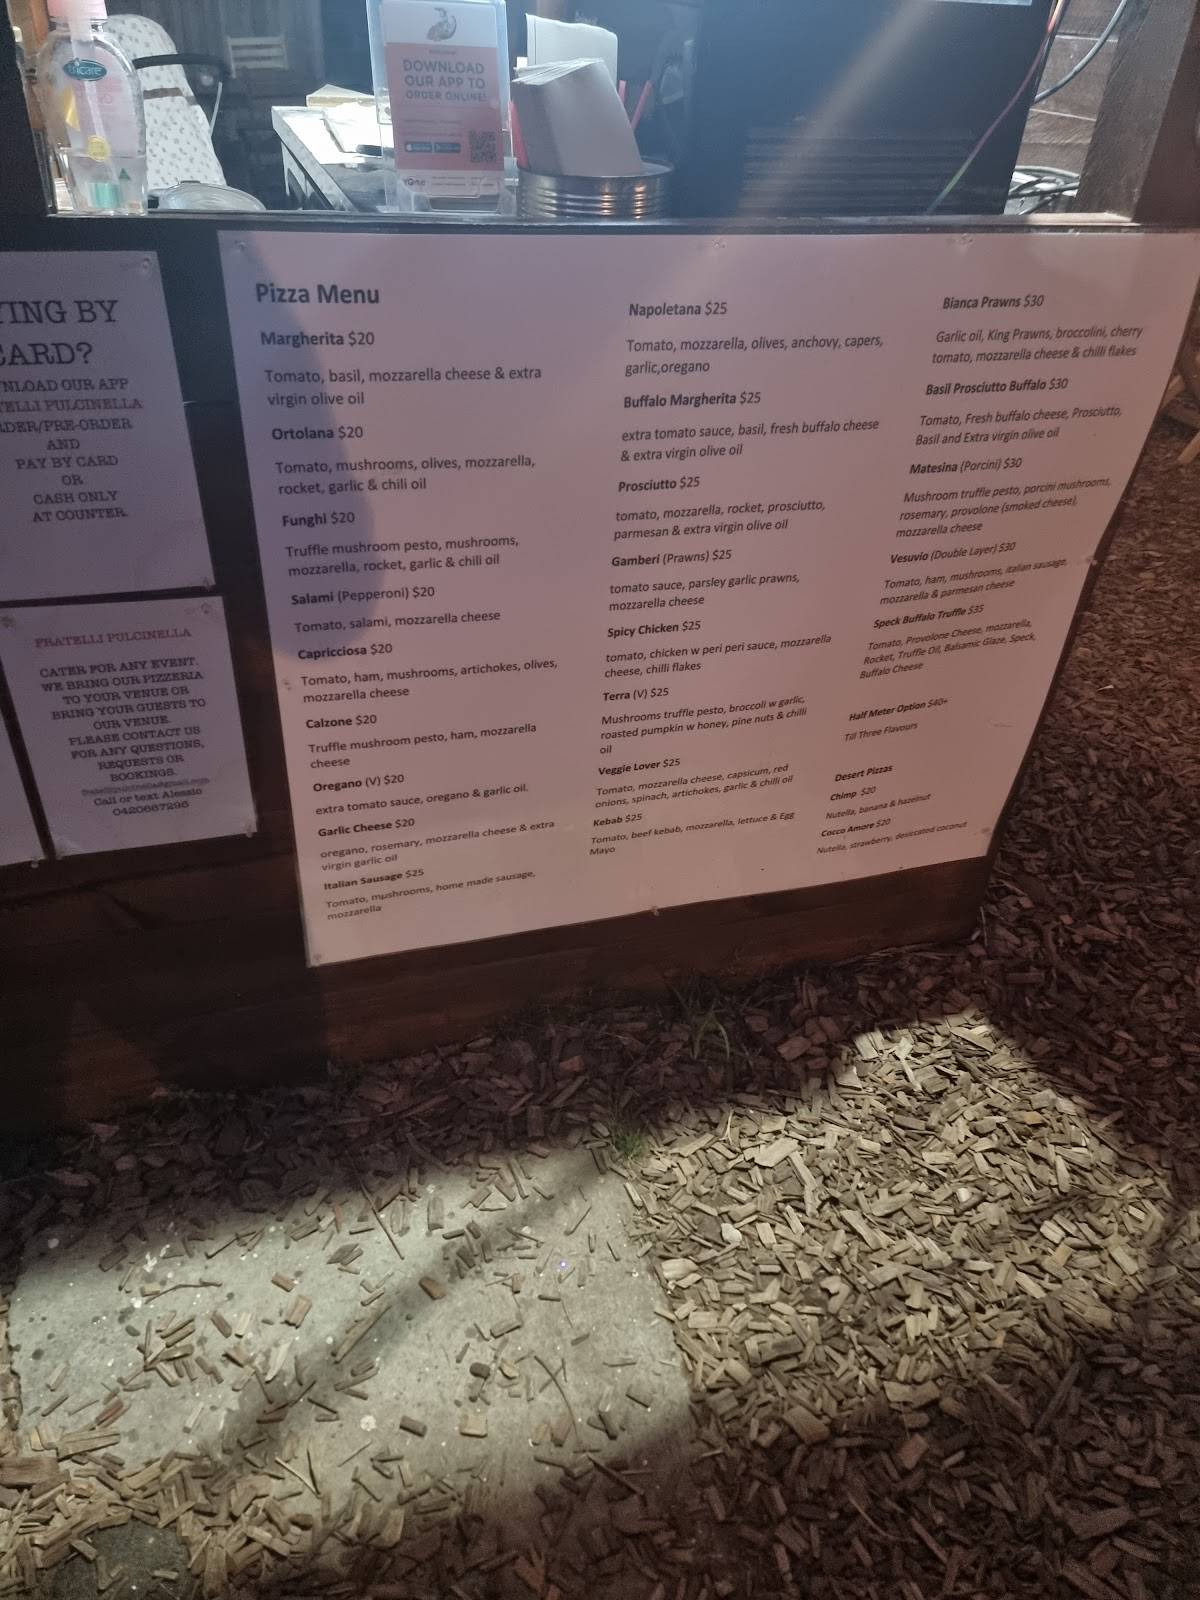 DOWNLOAD
OUR APP TO
ORDER ONLINE!
YING BY
CARD?
NLOAD OUR APP
TELLI PULCINELLA
RDER/PRE-ORDER
AND
PAY BY CARD
OR
CASH ONLY
AT COUNTER.
FRATELLI PULCINELLA
CATER FOR ANY EVENT.
WE BRING OUR PIZZERIA
TO YOUR VENUE OR
BRING YOUR GUESTS TO
OUR VENUE.
PLEASE CONTACT US
FOR ANY QUESTIONS,
REQUESTS OR
BOOKINGS.
Call or text Alessio
0420667296
Pizza Menu
Margherita $20
Tomato, basil, mozzarella cheese & extra
virgin olive oil
Ortolana $20
Tomato, mushrooms, olives, mozzarella,
rocket, garlic & chili oil
Funghi $20
Truffle mushroom pesto, mushrooms,
mozzarella, rocket, garlic & chili oil
Salami (Pepperoni) $20
Tomato, salami, mozzarella cheese
Capricciosa $20
Tomato, ham, mushrooms, artichokes, olives,
mozzarella cheese
Calzone $20
Truffle mushroom pesto, ham, mozzarella
cheese
Oregano (V) $20
extra tomato sauce, oregano & garlic oil.
Garlic Cheese $20
oregano, rosemary, mozzarella cheese & extra
virgin garlic oil
Italian Sausage $25
Tomato, mushrooms, home made sausage,
mozzarella
Napoletana $25
Tomato, mozzarella, olives, anchovy, capers,
garlic,oregano
Buffalo Margherita $25
extra tomato sauce, basil, fresh buffalo cheese
& extra virgin olive oil
Prosciutto $25
tomato, mozzarella, rocket, prosciutto,
parmesan & extra virgin olive oil
Gamberi (Prawns) $25
tomato sauce, parsley garlic prawns,
mozzarella cheese
Spicy Chicken $25
tomato, chicken w peri peri sauce, mozzarella
cheese, chilli flakes
Terra (V) $25
Mushrooms truffle pesto, broccoli w garlic,
roasted pumpkin w honey, pine nuts & chilli
oil
Veggie Lover $25
Tomato, mozzarella cheese, capsicum, red
onions, spinach, artichokes, garlic & chilli oil
Kebab $25
Tomato, beef kebab, mozzarella, lettuce & Egg
Mayo
Bianca Prawns $30
Garlic oil, King Prawns, broccolini, cherry
tomato, mozzarella cheese & chilli flakes
Basil Prosciutto Buffalo $30
Tomato, Fresh buffalo cheese, Prosciutto,
Basil and Extra virgin olive oil
Matesina (Porcini) $30
Mushroom truffle pesto, porcini mushrooms,
rosemary, provolone (smoked cheese),
mozzarella cheese
Vesuvio (Double Layer) $30
Tomato, ham, mushrooms, italian sausage,
mozzarella & parmesan cheese
Speck Buffalo Truffle $35
Tomato, Provolone Cheese, mozzarella,
Rocket, Truffle Oil, Balsamic Glaze, Speck,
Buffalo Cheese
Half Meter Option $40+
Till Three Flavours
Desert Pizzas
Chimp $20
Nutella, banana & hazelnut
Cocco Amore $20
Nutella, strawberry, desiccated coconut